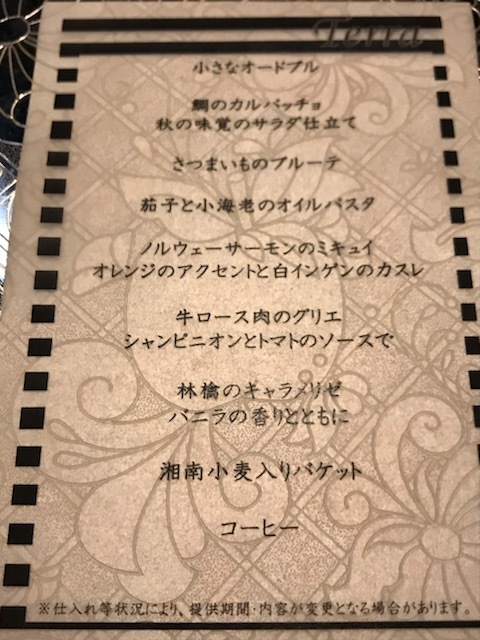 Terra
小さなオードブル
鯛のカルパッチョ
秋の味覚のサラダ仕立て
さつまいものブルーテ
茄子と小海老のオイルパスタ
ノルウェーサーモンのミキュイ
オレンジのアクセントと白インゲンのカスレ
牛ロース肉のグリエ
シャンピニオンとトマトのソースで
林檎のキャラメリゼ
バニラの香りとともに
湘南小麦入りバケット
コーヒー
※仕入れ等状況により、提供期間・内容が変更となる場合があります。